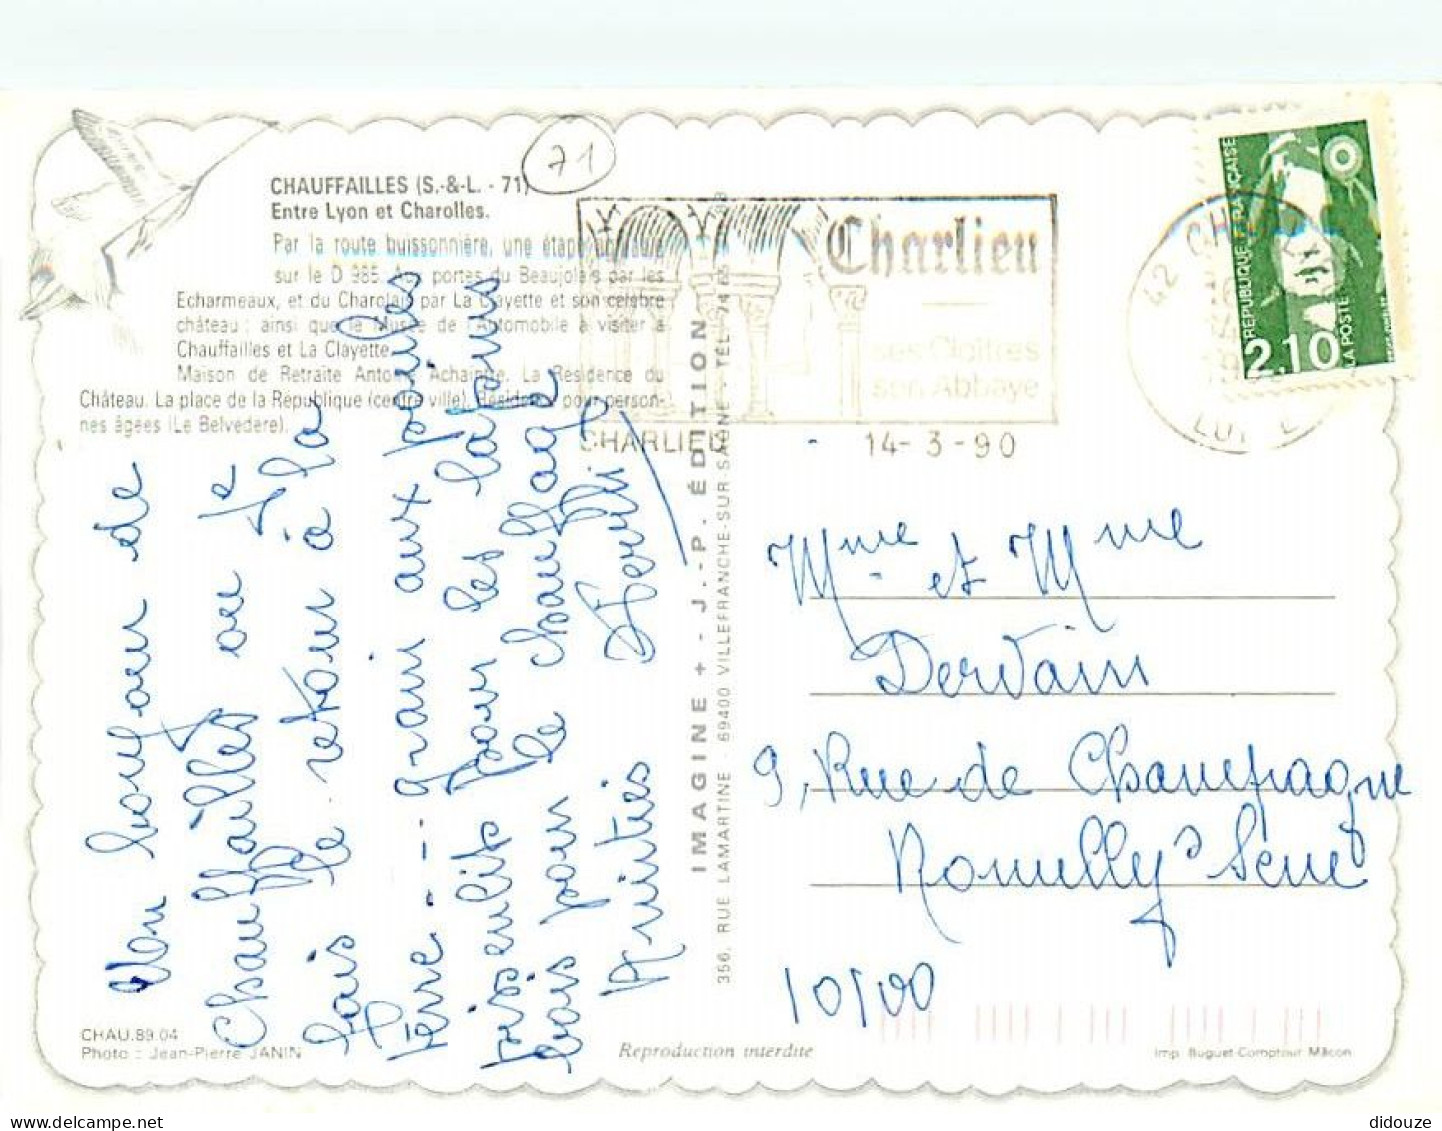 71
CHAUFFAILLES (S.-&-L. - 71)
Entre Lyon et Charolles.
Par la route buissonnière, une étape
sur le D 985. Aux portes du Beaujolais par les
Echarmeaux, et du Charolais par La Clayette et son célèbre
château ; ainsi que le Musée de l'Automobile à visiter à
Chauffailles et La Clayette.
Maison de Retraite Antoine Achaintre. La Résidence du
Château. La place de la République (centre ville). Résidence pour person-
nes âgées (Le Belvedere).
Charlieu
ses Cloîtres
son Abbaye
CHARLIEU
14-3-90
42
RÉPUBLIQUE FRANÇAISE
2,10
LA POSTE
de
Chauffailles ou je
fais le retour à la
terre - grain aux poules
pissenlits pour les lapins
bois pour le chauffage
Amitiés
IMAGINE + - J.-P. ÉDITION
356, RUE LAMARTINE - 69400 VILLEFRANCHE-SUR-SAÔNE - TÉL. 74
Mme et Mme
Dervain
9, Rue de Champagne
Romilly s Seine
10100
CHAU.89.04
Photo : Jean-Pierre JANIN
Reproduction interdite
Imp. Buguet-Comptour Mâcon
didouze